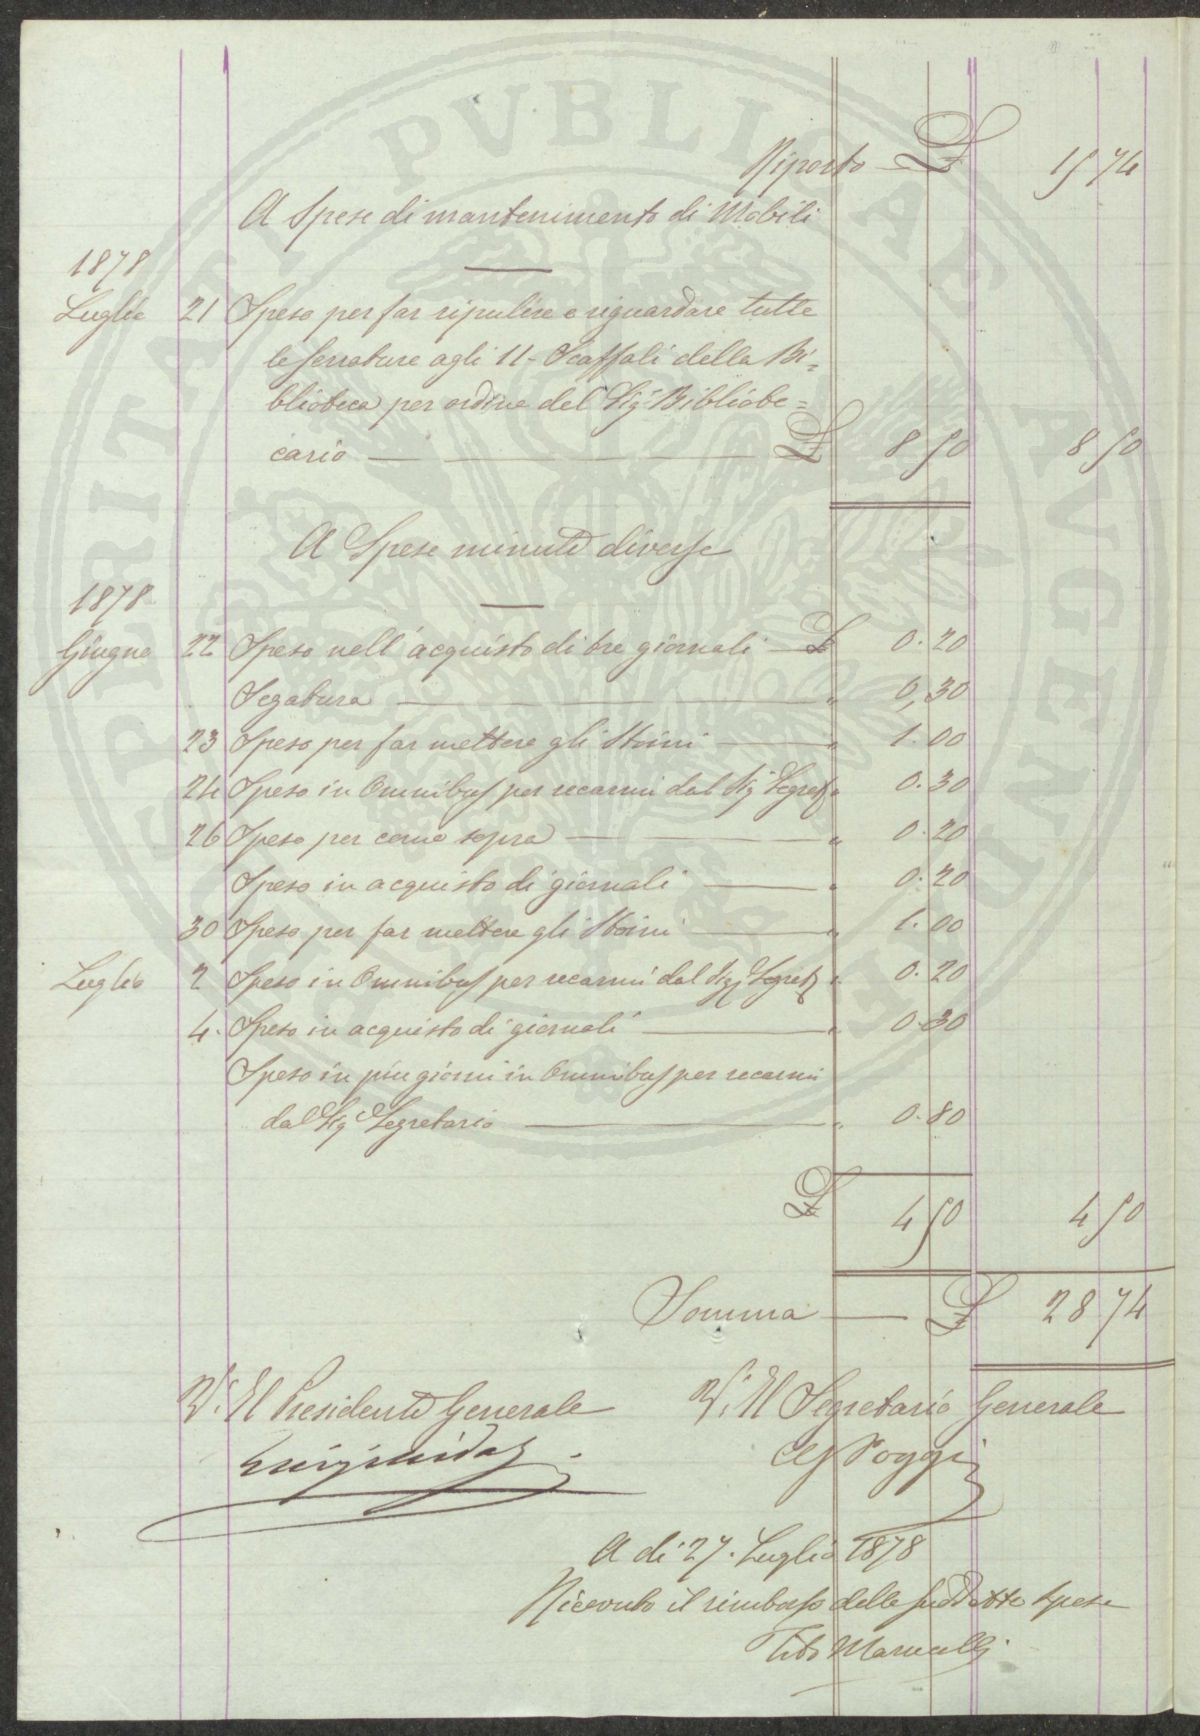 Riporto — £ 15 74
A Spese di mantenimento di Mobili
1878
Luglio 21 Speso per far ripulire e riguardare tutte
le serrature agli 11 - Scaffali della Bi=
blioteca per ordine del Sig.r Bibliote=
cario — £ 8 50 8 50
A Spese minute diverse
1878
Giugno 22 Speso nell'acquisto di tre giornali — £ 0.20
Segatura — " 0,30
23 Speso per far mettere gli Stoini — " 1.00
24 Speso in Omnibus per recarmi dal Sig. Segret. " 0.30
26 Speso per come sopra — " 0.20
Speso in acquisto di giornali — " 0.20
30 Speso per far mettere gli Stoini — " 1.00
Luglio 2 Speso in Omnibus per recarmi dal Sig. Segret. " 0.20
4. Speso in acquisto di giornali — " 0.30
Speso in più giorni in Omnibus per recarmi
dal Sig. Segretario — " 0.80
£ 4 50 4 50
Somma — £ 28 74
V. Il Presidente Generale V. Il Segretario Generale
Poggi
A dì 27. Luglio 1878
Ricevuto il rimborso delle suddette spese
Tito Marucelli
PROSPERITATI PVBLICAE AVGENDAE